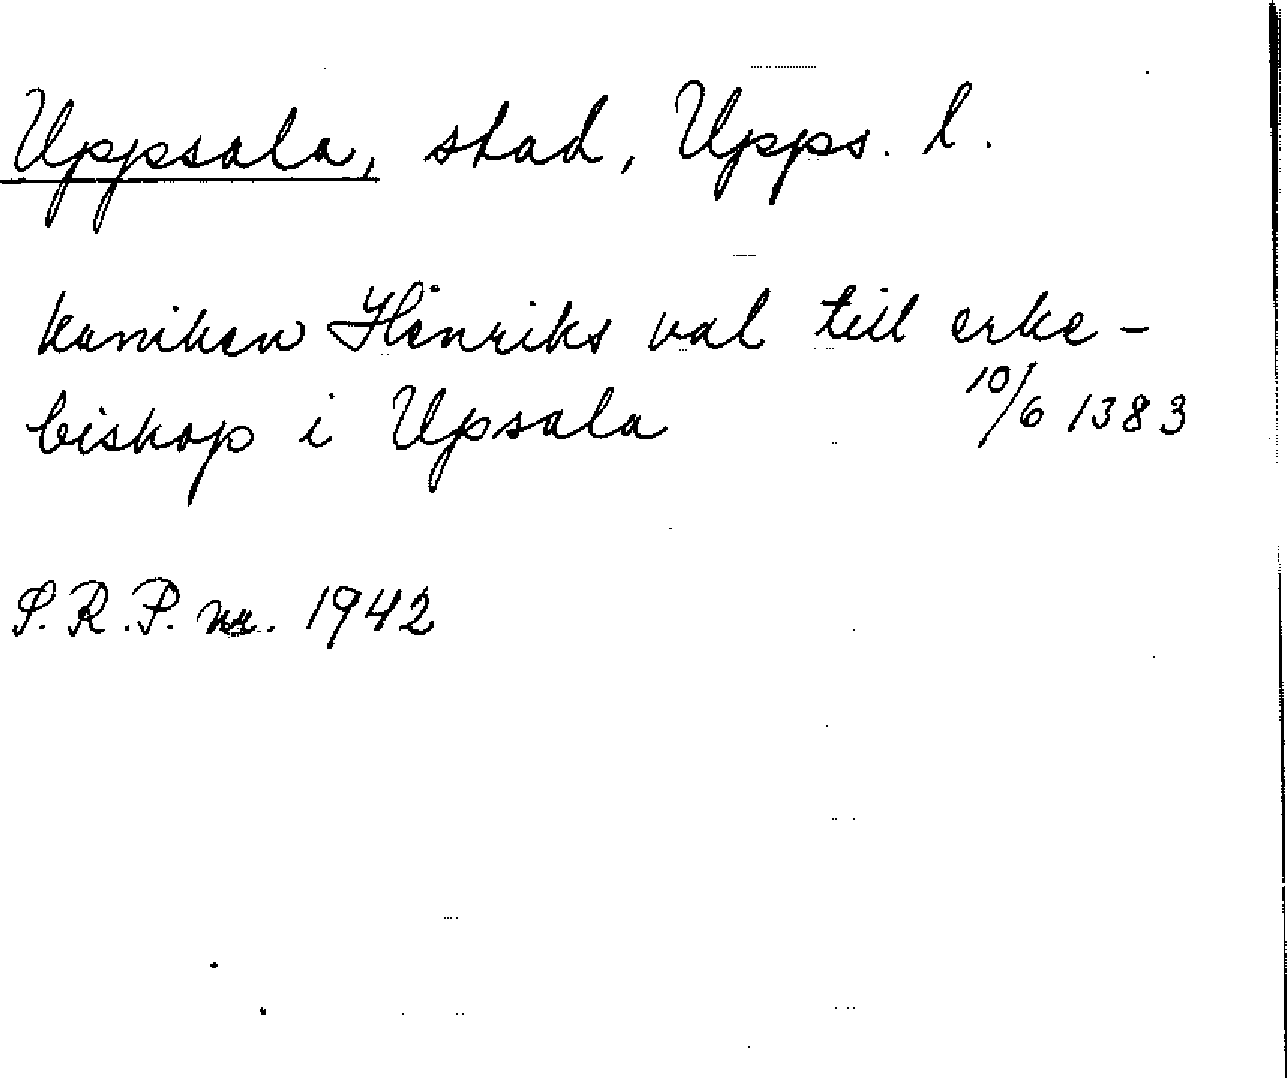 Uppsala, stad, Upps. l.
kaniken Henriks val till erke-
biskop i Upsala 10/6 1383
S.R.P. nr. 1942